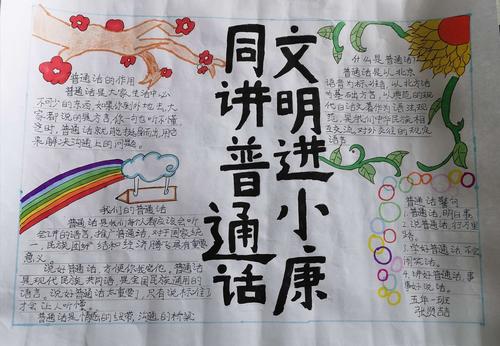 同讲普通话
文明进小康
普通话的作用
普通话是大家生活中必
不可少的东西,如果你到外地去,大
家都说的是方言,你一句也听不懂
这时,普通话就能接拍而出,用它
来解决沟通上的问题。
什么是普通话
普通话是以北京
语音为标准音,以北方话
为基础方言,以典范的现
代白话文著作为语法规
范,是我们中华民族相
互交流,对外交往的规定
语言
我们的普通话
普通话是我们每个人都应该会听
会讲的语言,推广普通话,对于国家统
一,民族团结和经济腾飞具有重要
意义。
说好普通话,方便你我他。普通话
是现代民族共同语,是全国民族通用的
语言。说好普通话太重要了,只有说标准了
才会让人听懂。
普通话是情感的纽带,沟通的桥梁
普通话警句
1.普通话,明日春
2.说普通话,行万里
路。
3.学好普通话,不会
闹笑话。
4.讲好普通话,事
事好说话。
五年一班
张贤喆